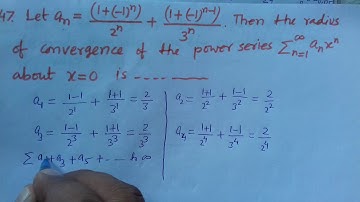 47. Let aₙ = (1+(-1)ⁿ)/2ⁿ + (1+(-1)ⁿ⁻¹)/3ⁿ. Then the radius
of convergence of the power series ∑ₙ₌₁^∞ aₙxⁿ
about x=0 is ----------
a₁ = (1-1)/2¹ + (1+1)/3¹ = 2/3
a₃ = (1-1)/2³ + (1+1)/3³ = 2/3³
∑ a₁+a₃+a₅+ ---
a₂ = (1+1)/2² + (1-1)/3² = 2/2²
a₄ = (1+1)/2⁴ + (1-1)/3⁴ = 2/2⁴